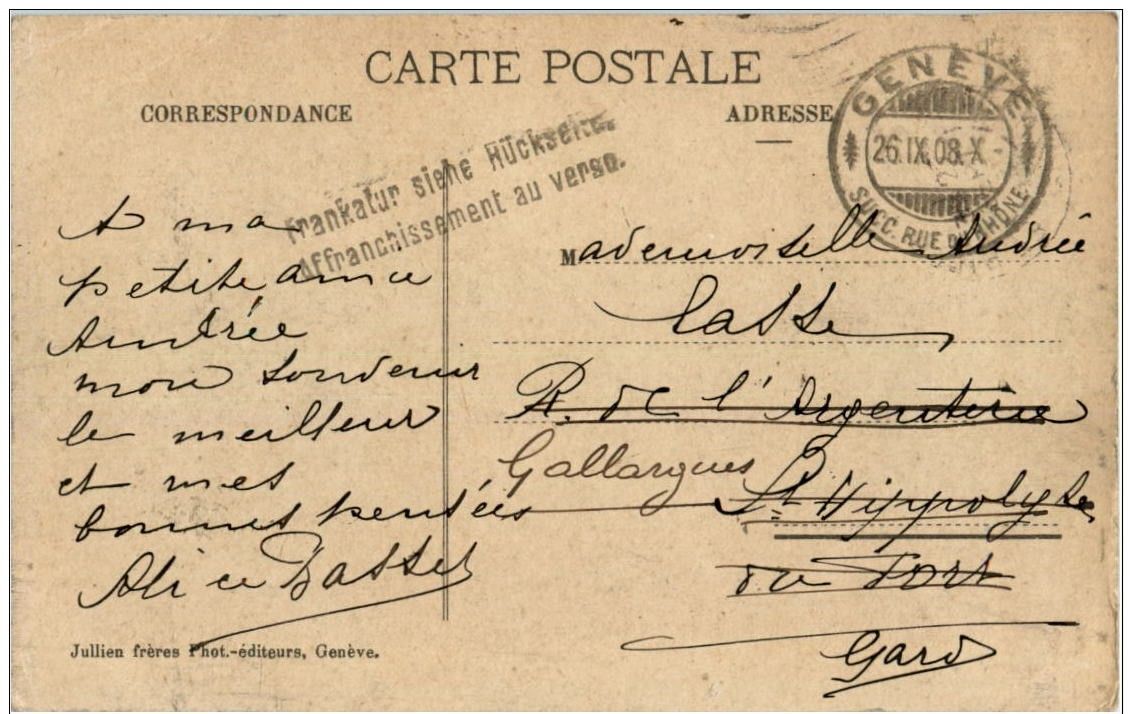 CARTE POSTALE
CORRESPONDANCE
ADRESSE
Frankatur siehe Rückseite.
Affranchissement au verso.
GENÈVE
26.IX.08.X
SUCC. RUE DU RHÔNE
A ma
petite amie
Andrée
mon souvenir
le meilleur
et mes
bonnes pensées
Alice Basset
Mademoiselle Andrée
Lasse
R. de l'Argenterie
Gallargues
St. Hippolyte
du Fort
Gard
Jullien frères Phot.-éditeurs, Genève.